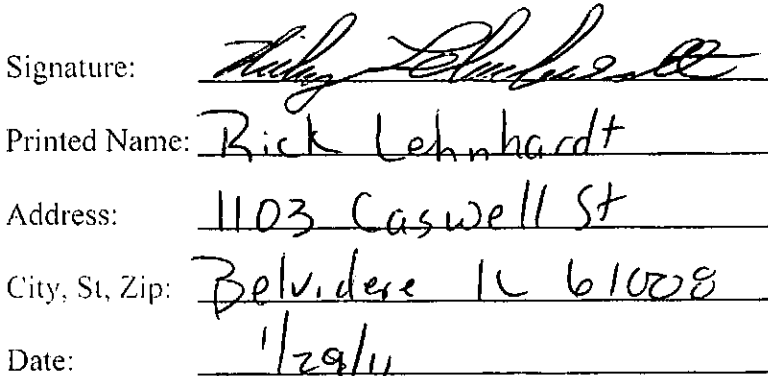 Signature:
Printed Name: Rick Lehnhardt
Address: 1103 Caswell St
City, St, Zip: Belvidere IL 61008
Date: 1/29/11